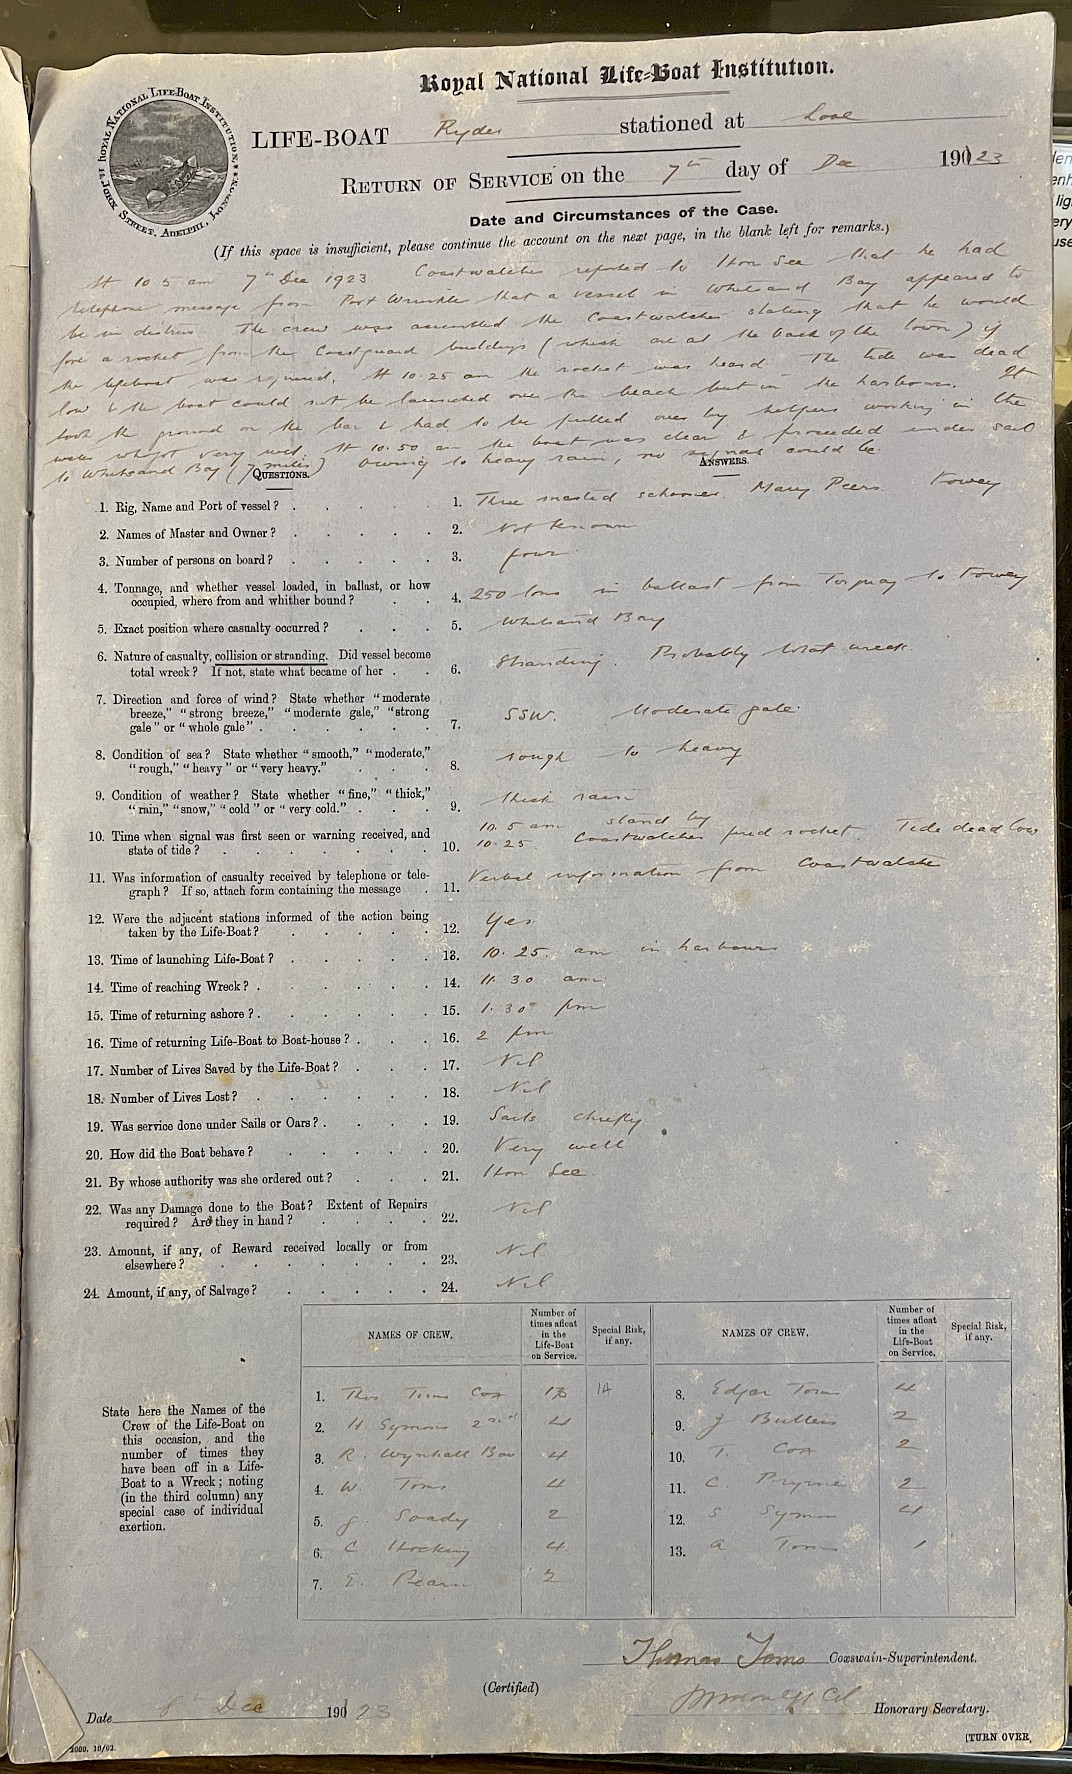 Royal National Life-Boat Institution.
ROYAL NATIONAL LIFE-BOAT INSTITUTION, 14 JOHN STREET, ADELPHI, LONDON.
LIFE-BOAT Ryder stationed at Looe
RETURN OF SERVICE on the 7th day of Dec 190 23
Date and Circumstances of the Case.
(If this space is insufficient, please continue the account on the next page, in the blank left for remarks.)
At 10 5 am 7th Dec 1923 Coastwatcher reported to Hon Sec that he had
telephone message from Port Wrinkle that a vessel in Whitsand Bay appeared to
be in distress The crew was assembled the Coastwatcher stating that he would
fire a rocket from the Coastguard buildings (which are at the back of the town) if
the lifeboat was required. At 10.25 am the rocket was heard. The tide was dead
low & the boat could not be launched over the beach but in the harbour. It
took the ground on the bar & had to be pulled over by helpers working in the
water whilst very wet. At 10.50 am the boat was clear & proceeded under sail
to Whitsand Bay (7 miles) Owing to heavy rain, no signal could be
QUESTIONS. ANSWERS.
1. Rig, Name and Port of vessel? 1. Three masted schooner. Mary Peers. Fowey
2. Names of Master and Owner? 2. Not known
3. Number of persons on board? 3. four
4. Tonnage, and whether vessel loaded, in ballast, or how
occupied, where from and whither bound? 4. 250 tons in ballast from Torquay to Fowey
5. Exact position where casualty occurred? 5. Whitsand Bay
6. Nature of casualty, collision or stranding. Did vessel become
total wreck? If not, state what became of her 6. Stranding. Probably total wreck.
7. Direction and force of wind? State whether "moderate
breeze," "strong breeze," "moderate gale," "strong
gale" or "whole gale" 7. SSW. Moderate gale
8. Condition of sea? State whether "smooth," "moderate,"
"rough," "heavy" or "very heavy." 8. rough to heavy
9. Condition of weather? State whether "fine," "thick,"
"rain," "snow," "cold" or "very cold." 9. thick rain
10. Time when signal was first seen or warning received, and
state of tide? 10. 10.5 am stand by
10.25. Coastwatcher fired rocket. Tide dead low
11. Was information of casualty received by telephone or tele-
graph? If so, attach form containing the message 11. Verbal information from Coastwatcher
12. Were the adjacent stations informed of the action being
taken by the Life-Boat? 12. Yes
13. Time of launching Life-Boat? 13. 10.25. am in harbour
14. Time of reaching Wreck? 14. 11.30 am
15. Time of returning ashore? 15. 1.30 pm
16. Time of returning Life-Boat to Boat-house? 16. 2 pm
17. Number of Lives Saved by the Life-Boat? 17. Nil
18. Number of Lives Lost? 18. Nil
19. Was service done under Sails or Oars? 19. Sails chiefly
20. How did the Boat behave? 20. Very well
21. By whose authority was she ordered out? 21. Hon Sec.
22. Was any Damage done to the Boat? Extent of Repairs
required? Are they in hand? 22. Nil
23. Amount, if any, of Reward received locally or from
elsewhere? 23. Nil
24. Amount, if any, of Salvage? 24. Nil
NAMES OF CREW. Number of times afloat in the Life-Boat on Service. Special Risk, if any. NAMES OF CREW. Number of times afloat in the Life-Boat on Service. Special Risk, if any.
State here the Names of the
Crew of the Life-Boat on
this occasion, and the
number of times they
have been off in a Life-
Boat to a Wreck; noting
(in the third column) any
special case of individual
exertion.
1. Thos Toms Cox 14
2. H Symons 2nd 4
3. R. Wynhall Bow 4
4. W. Toms 4
5. J. Soady 2
6. C Hocking 4
7. E. Pearn 2
8. Edgar Toms 4
9. J Butters 2
10. T. Cox 2
11. C. Prynne 2
12. S Symons 4
13. A Toms 1
Thomas Toms Coxswain-Superintendent.
(Certified)
Col Honorary Secretary.
Date 8th Dec 190 23
2000. 10/02.
[TURN OVER,